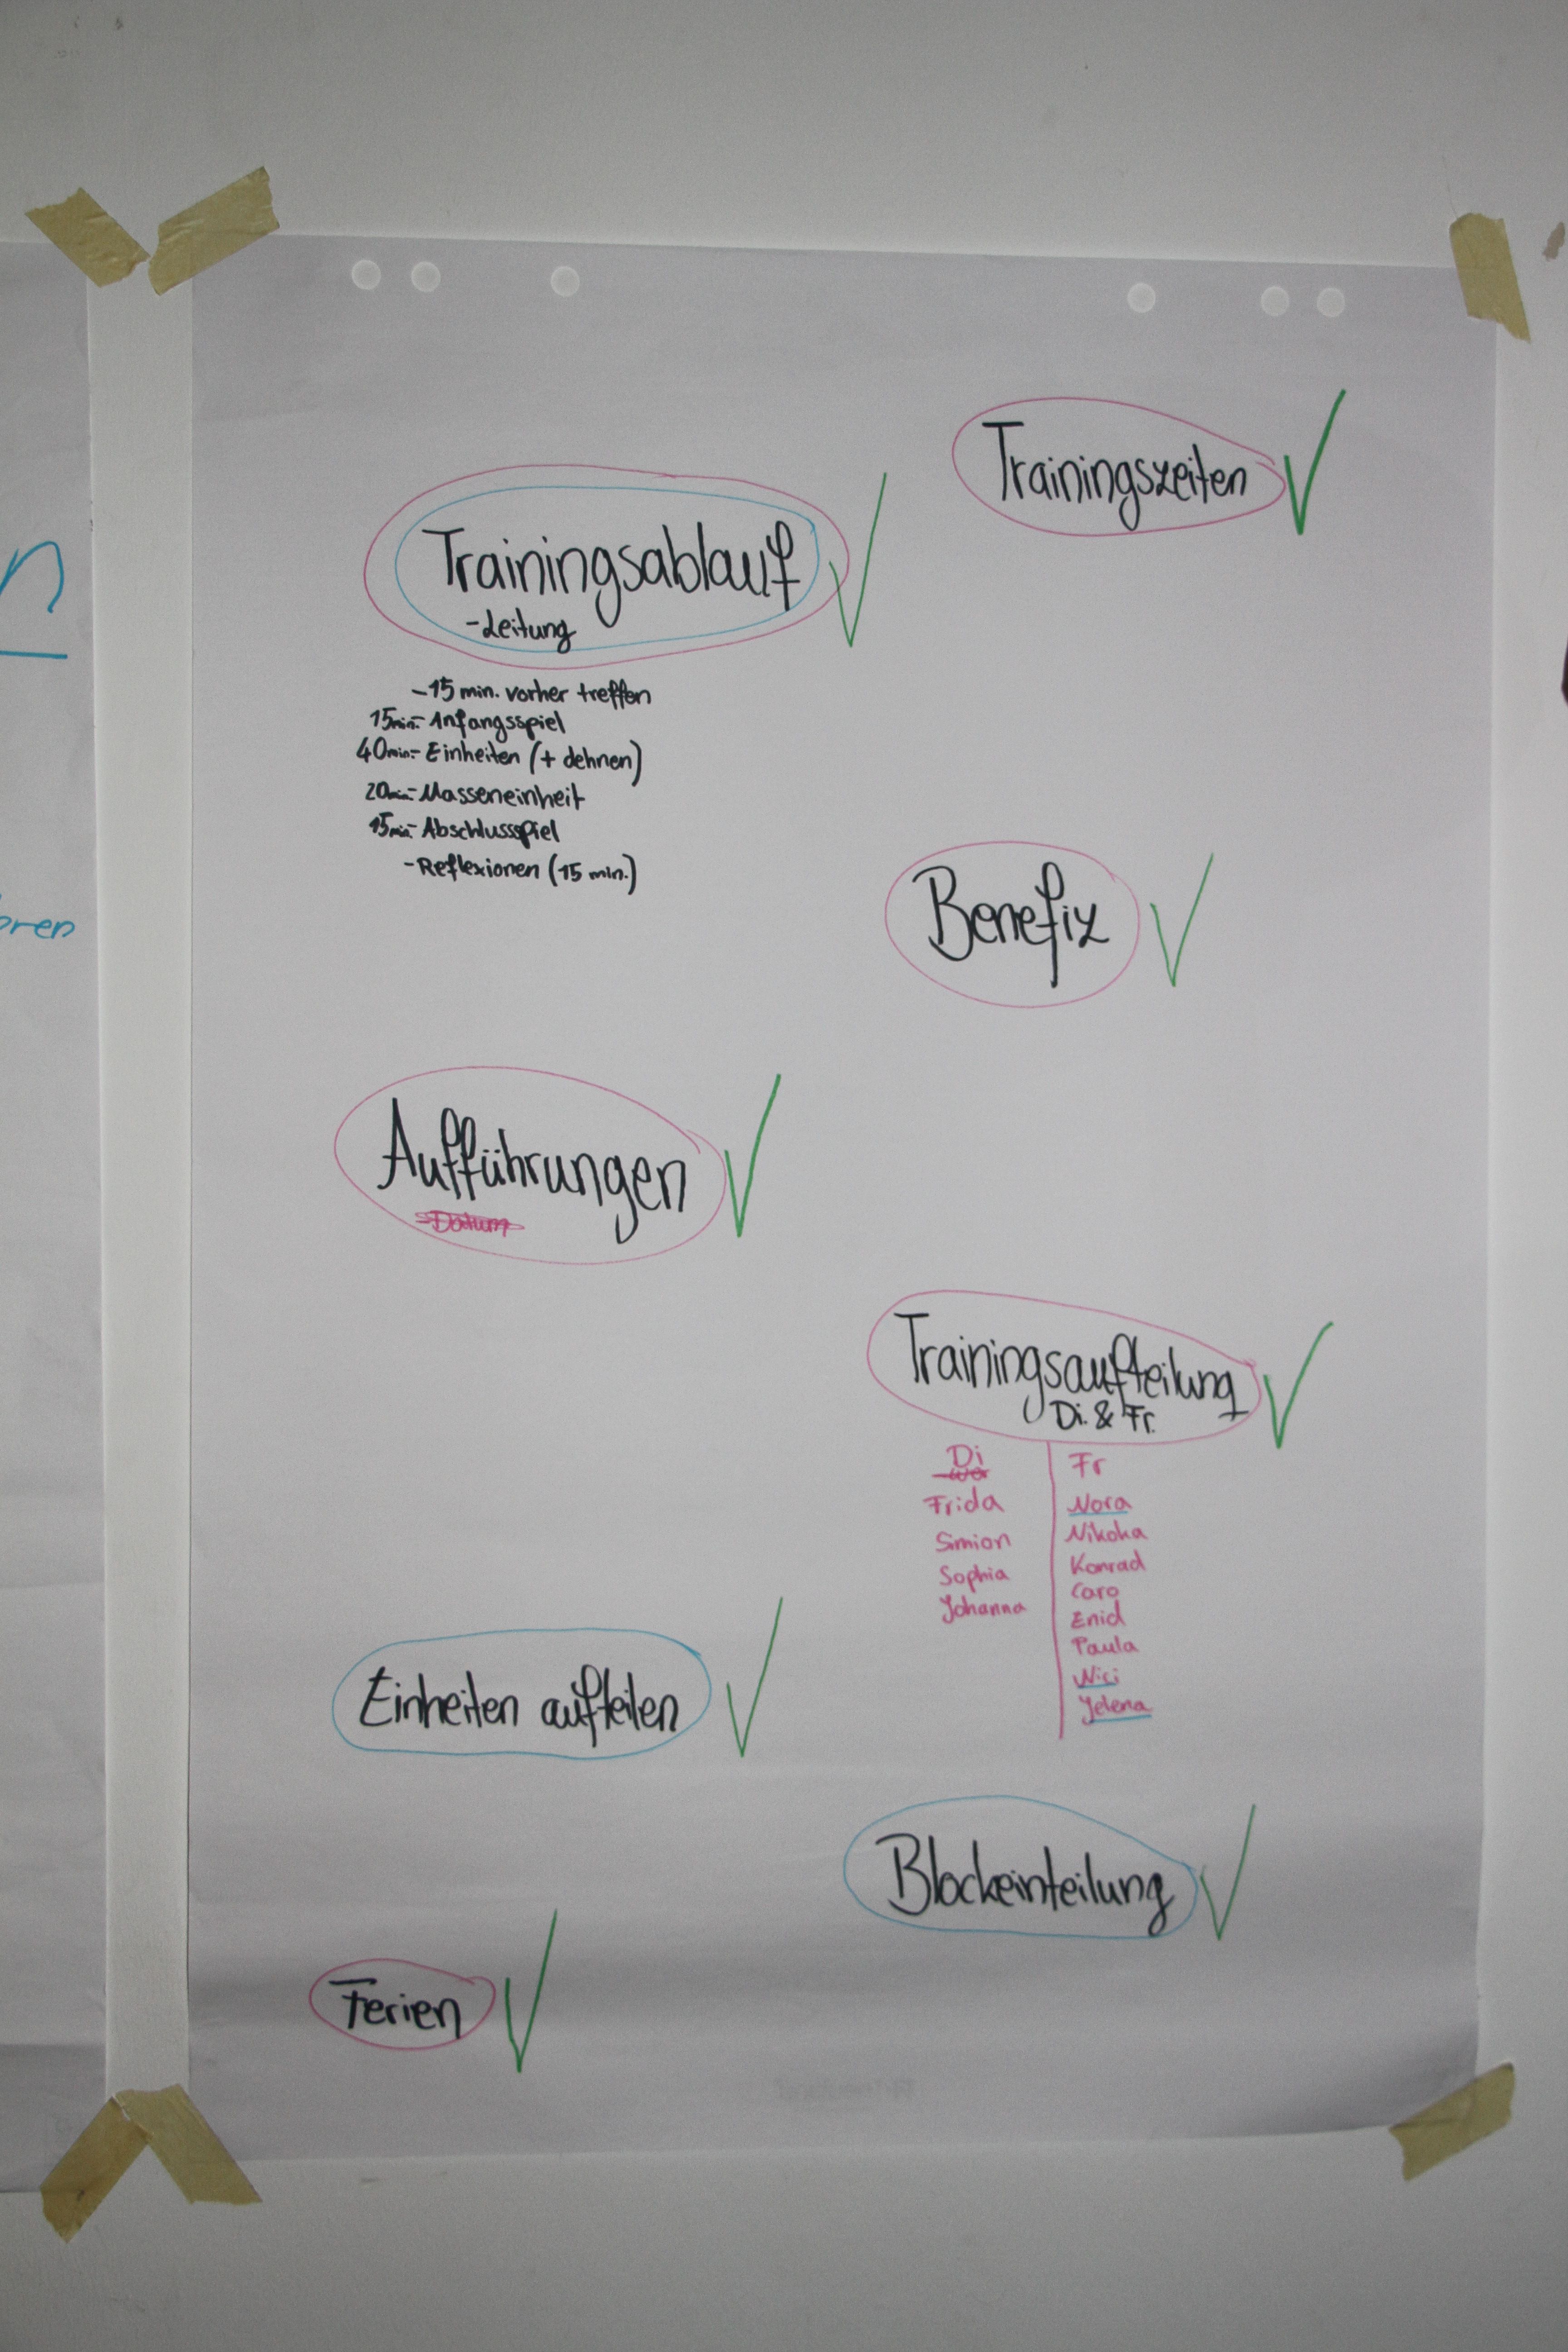 Trainingszeiten
Trainingsablauf
-Leitung
-15 min. vorher treffen
15min- Anfangsspiel
40min- Einheiten (+ dehnen)
20min- Masseneinheit
15min- Abschlussspiel
-Reflexionen (15 min.)
Benefiz
Aufführungen
-Datum
Trainingsaufteilung
Di. & Fr.
Di
Frida
Simion
Sophia
Johanna
Fr
Nora
Nikoka
Konrad
Caro
Enid
Paula
Nici
Jelena
Einheiten aufteilen
Blockeinteilung
Ferien